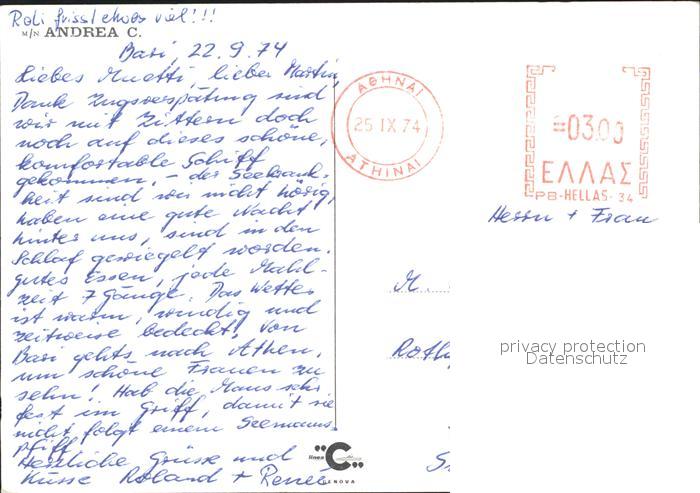 Roli frisst etwas viel!!!
M/N ANDREA C.
Bari, 22.9.74
Liebes Muetti, lieber Martin,
Dank Zugsverspätung sind
wir mit Zittern doch
noch auf dieses schöne,
komfortable Schiff
gekommen, - der Seekrank-
heit sind wir nicht hörig,
haben eine gute Nacht
hinter uns, sind in den
Schlaf gewiegelt worden.
gutes Essen, jede Mahl-
zeit 7 Gänge. Das Wetter
ist warm, windig und
zeitweise bedeckt. Von
Bari gehts nach Athen,
um schöne Frauen zu
sehn! Hab die Maus sehr
fest im Griff, damit sie
nicht folgt einem Seemanns-
pfiff
Herzliche Grüsse und
Küsse Roland + Renée
ΑΘΗΝΑΙ
25 IX 74
ATHINAI
=03.00
ΕΛΛΑΣ
PB-HELLAS-34
Herrn + Frau
M.
Roth
privacy protection
Datenschutz
linea "C"
GENOVA